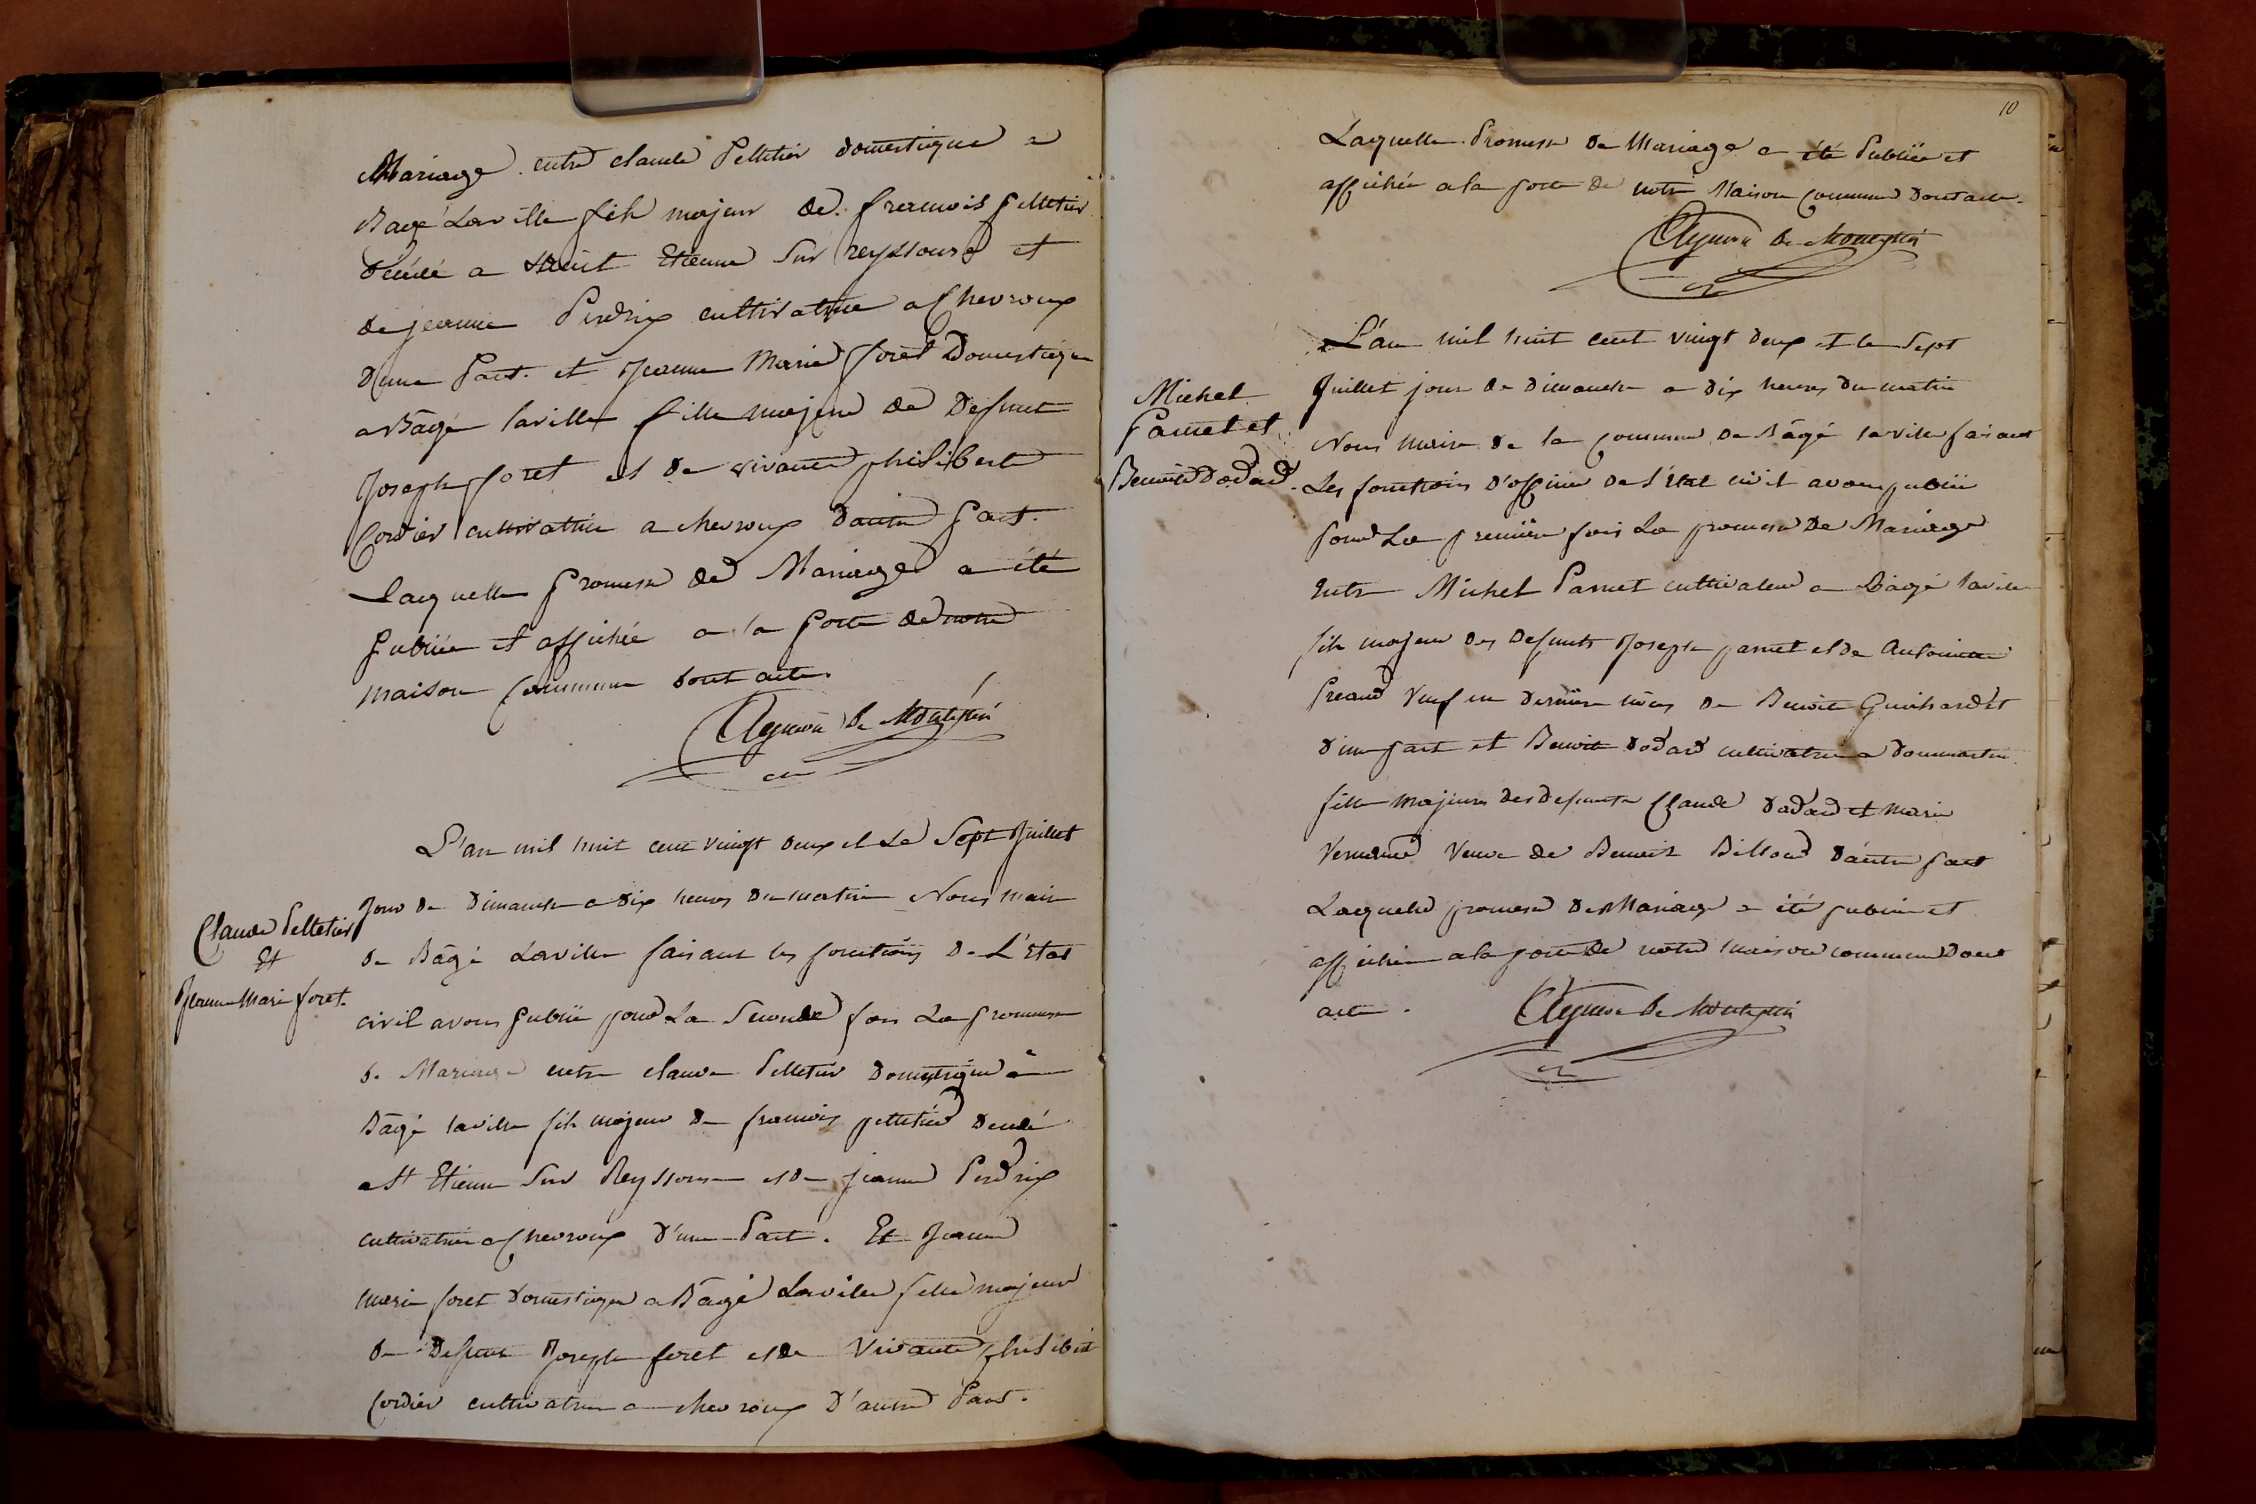 Mariage entre claude Pelletier domestique a
Bagé Laville fils majeur de francois pelletier
décédé a saint Etienne Sur reyssouse et
de jeanne Perdrix cultivatrice a Chevroux
d'une Part. et Jeanne Marie foret Domestique
a Bâgé laville fille majeure de Defunt
Joseph foret et de vivante philiberte
Cordier cultivatrice a chevroux d'autre part.
Laquelle promesse de Mariage a été
publiée et affichée a la porte de notre
maison commune dont acte.
Aymon de Montepin
L'an mil huit cent vingt deux et Le Sept Juillet
Jour de Dimanche a dix heures du matin Nous maire
de Bâgé Laville faisant les fonctions De L'état
civil avons publié pour La Seconde fois La promesse
de Mariage entre claude Pelletier Domestique à
Bâgé laville fils majeur de francois pelletier décédé
a St Etienne Sur Reyssouse et de jeanne Perdrix
cultivatrice a Chevroux d'une Part. Et Jeanne
Marie foret Domestique a Bâgé Laville fille majeure
de Defunt Joseph foret et de Vivante philiberte
Cordier cultivatrice a chevroux D'autre Part.
Claude Pelletier
Et
Jeanne Marie foret.
10
Laquelle Promesse de Mariage a été Publiée et
affichée a la porte de notre Maison Commune dont acte.
Aymon de Montepin
L'an mil huit cent vingt deux et le sept
Juillet jour de dimanche a dix heures du matin
Nous maire de la commune de Bâgé laville faisant
Les fonctions d'officier de l'état civil avons publié
pour La premiere fois La promesse De Mariage
Entre Michel Pamet cultivateur a Bâgé laville
fils majeur des defunts Joseph pamet et de Antoinette
veuf en dernière nôces de Benoite Guichardet
d'une part et Benoite dodard cultivatrice a dommartin
fille majeure des defunts Claude dodard et Marie
veuve de Benoit Billoud d'autre part
Laquelle promesse de Mariage a été publiée et
affichée a la porte de notre maison commune Dont
acte.
Aymon de Montepin
Michel
Pamet et
Benoite Dodard.